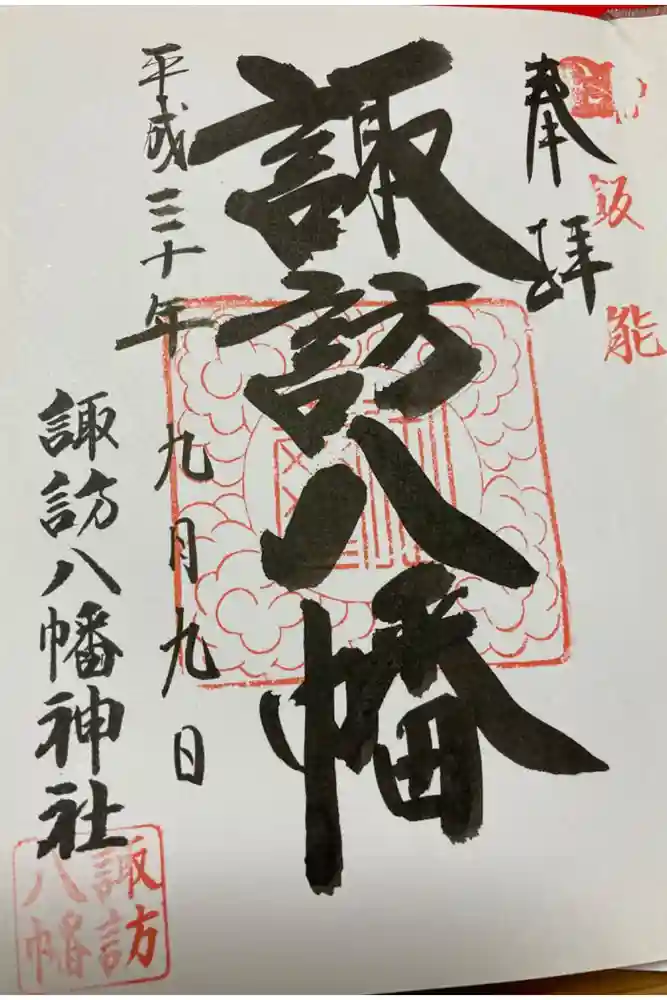 飯能
奉拝
諏訪八幡
平成三十年九月九日
諏訪八幡神社
諏訪
八幡